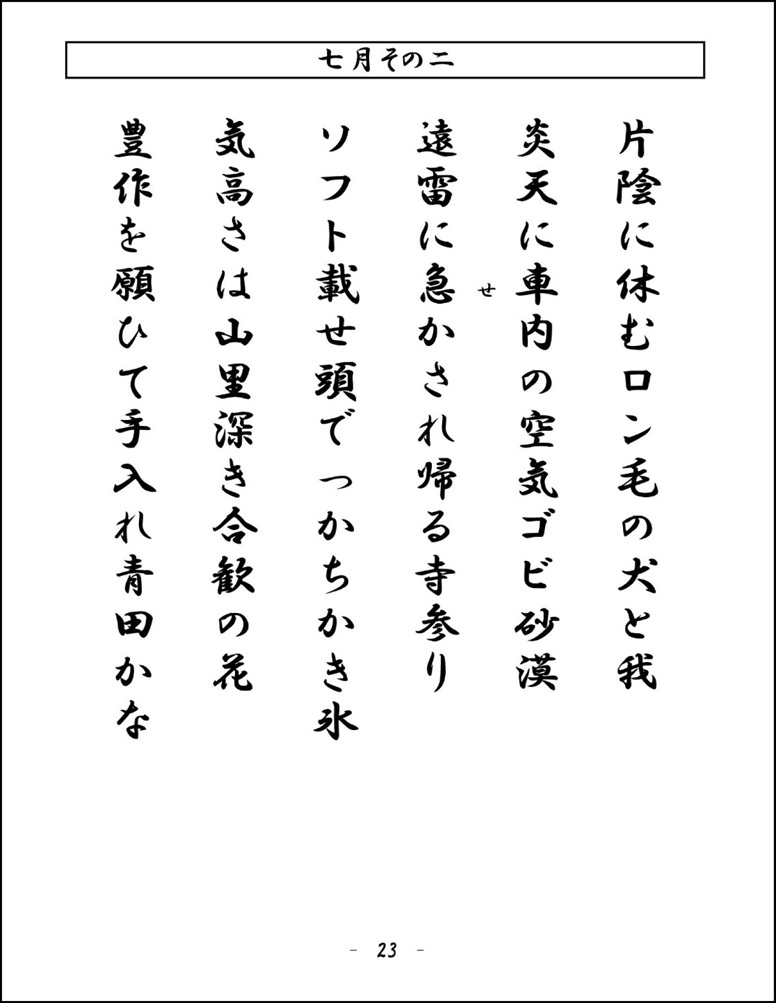 七月その二
片陰に休むロン毛の犬と我
炎天に車内の空気ゴビ砂漠
せ
遠雷に急かされ帰る寺参り
ソフト載せ頭でっかちかき氷
気高さは山里深き合歓の花
豊作を願ひて手入れ青田かな
- 23 -